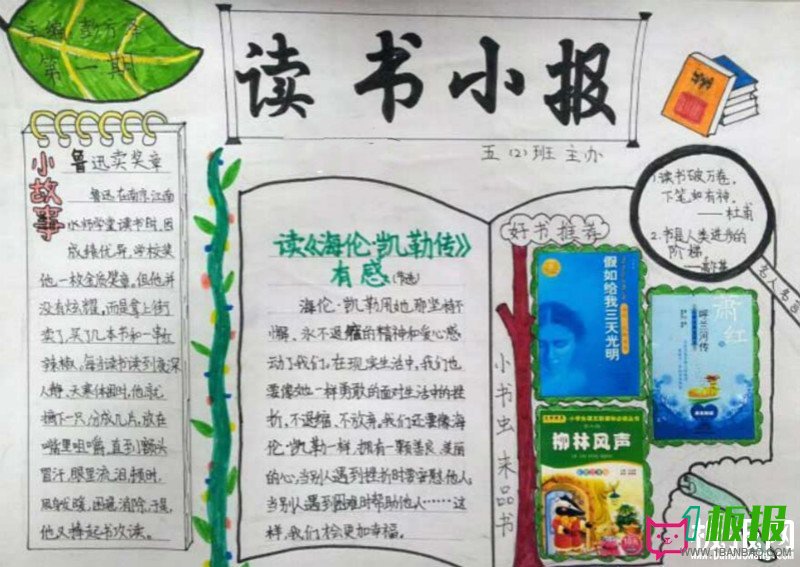 主编
第一期
读书小报
五（2）班 主办
小故事
鲁迅卖奖章
鲁迅在南京江南
水师学堂读书时，因
成绩优异，学校奖
他一枚金质奖章，但他并
没有炫耀，而是拿上街
卖了，买了几本书和一串红
辣椒。每当读书读到夜深
人静、天寒体困时，他就
摘下一只，分成几片，放在
嘴里咀嚼，直到额头
冒汗，眼里流泪，顿时，
周身发暖，困意消除，于是，
他又捧起书攻读。
读《海伦·凯勒传》
有感(节选)
海伦·凯勒用她那坚持不
懈、永不退缩的精神和爱心感
动了我们。在现实生活中，我们也
要像她一样勇敢的面对生活中的挫
折，不退缩、不放弃，我们还要像海
伦·凯勒一样，拥有一颗善良、美丽
的心，当别人遇到挫折时要安慰他人，
当别人遇到困难时帮助他人……这
样，我们才会更加幸福。
好书推荐
假如给我三天光明
小书虫来品书
小学生语文新课标必读丛书
柳林风声
萧红
呼兰河传
1.读书破万卷，
下笔如有神。
——杜甫
2.书是人类进步的
阶梯
——高尔基
名人名言
1板报
WWW.1BANBAO.COM